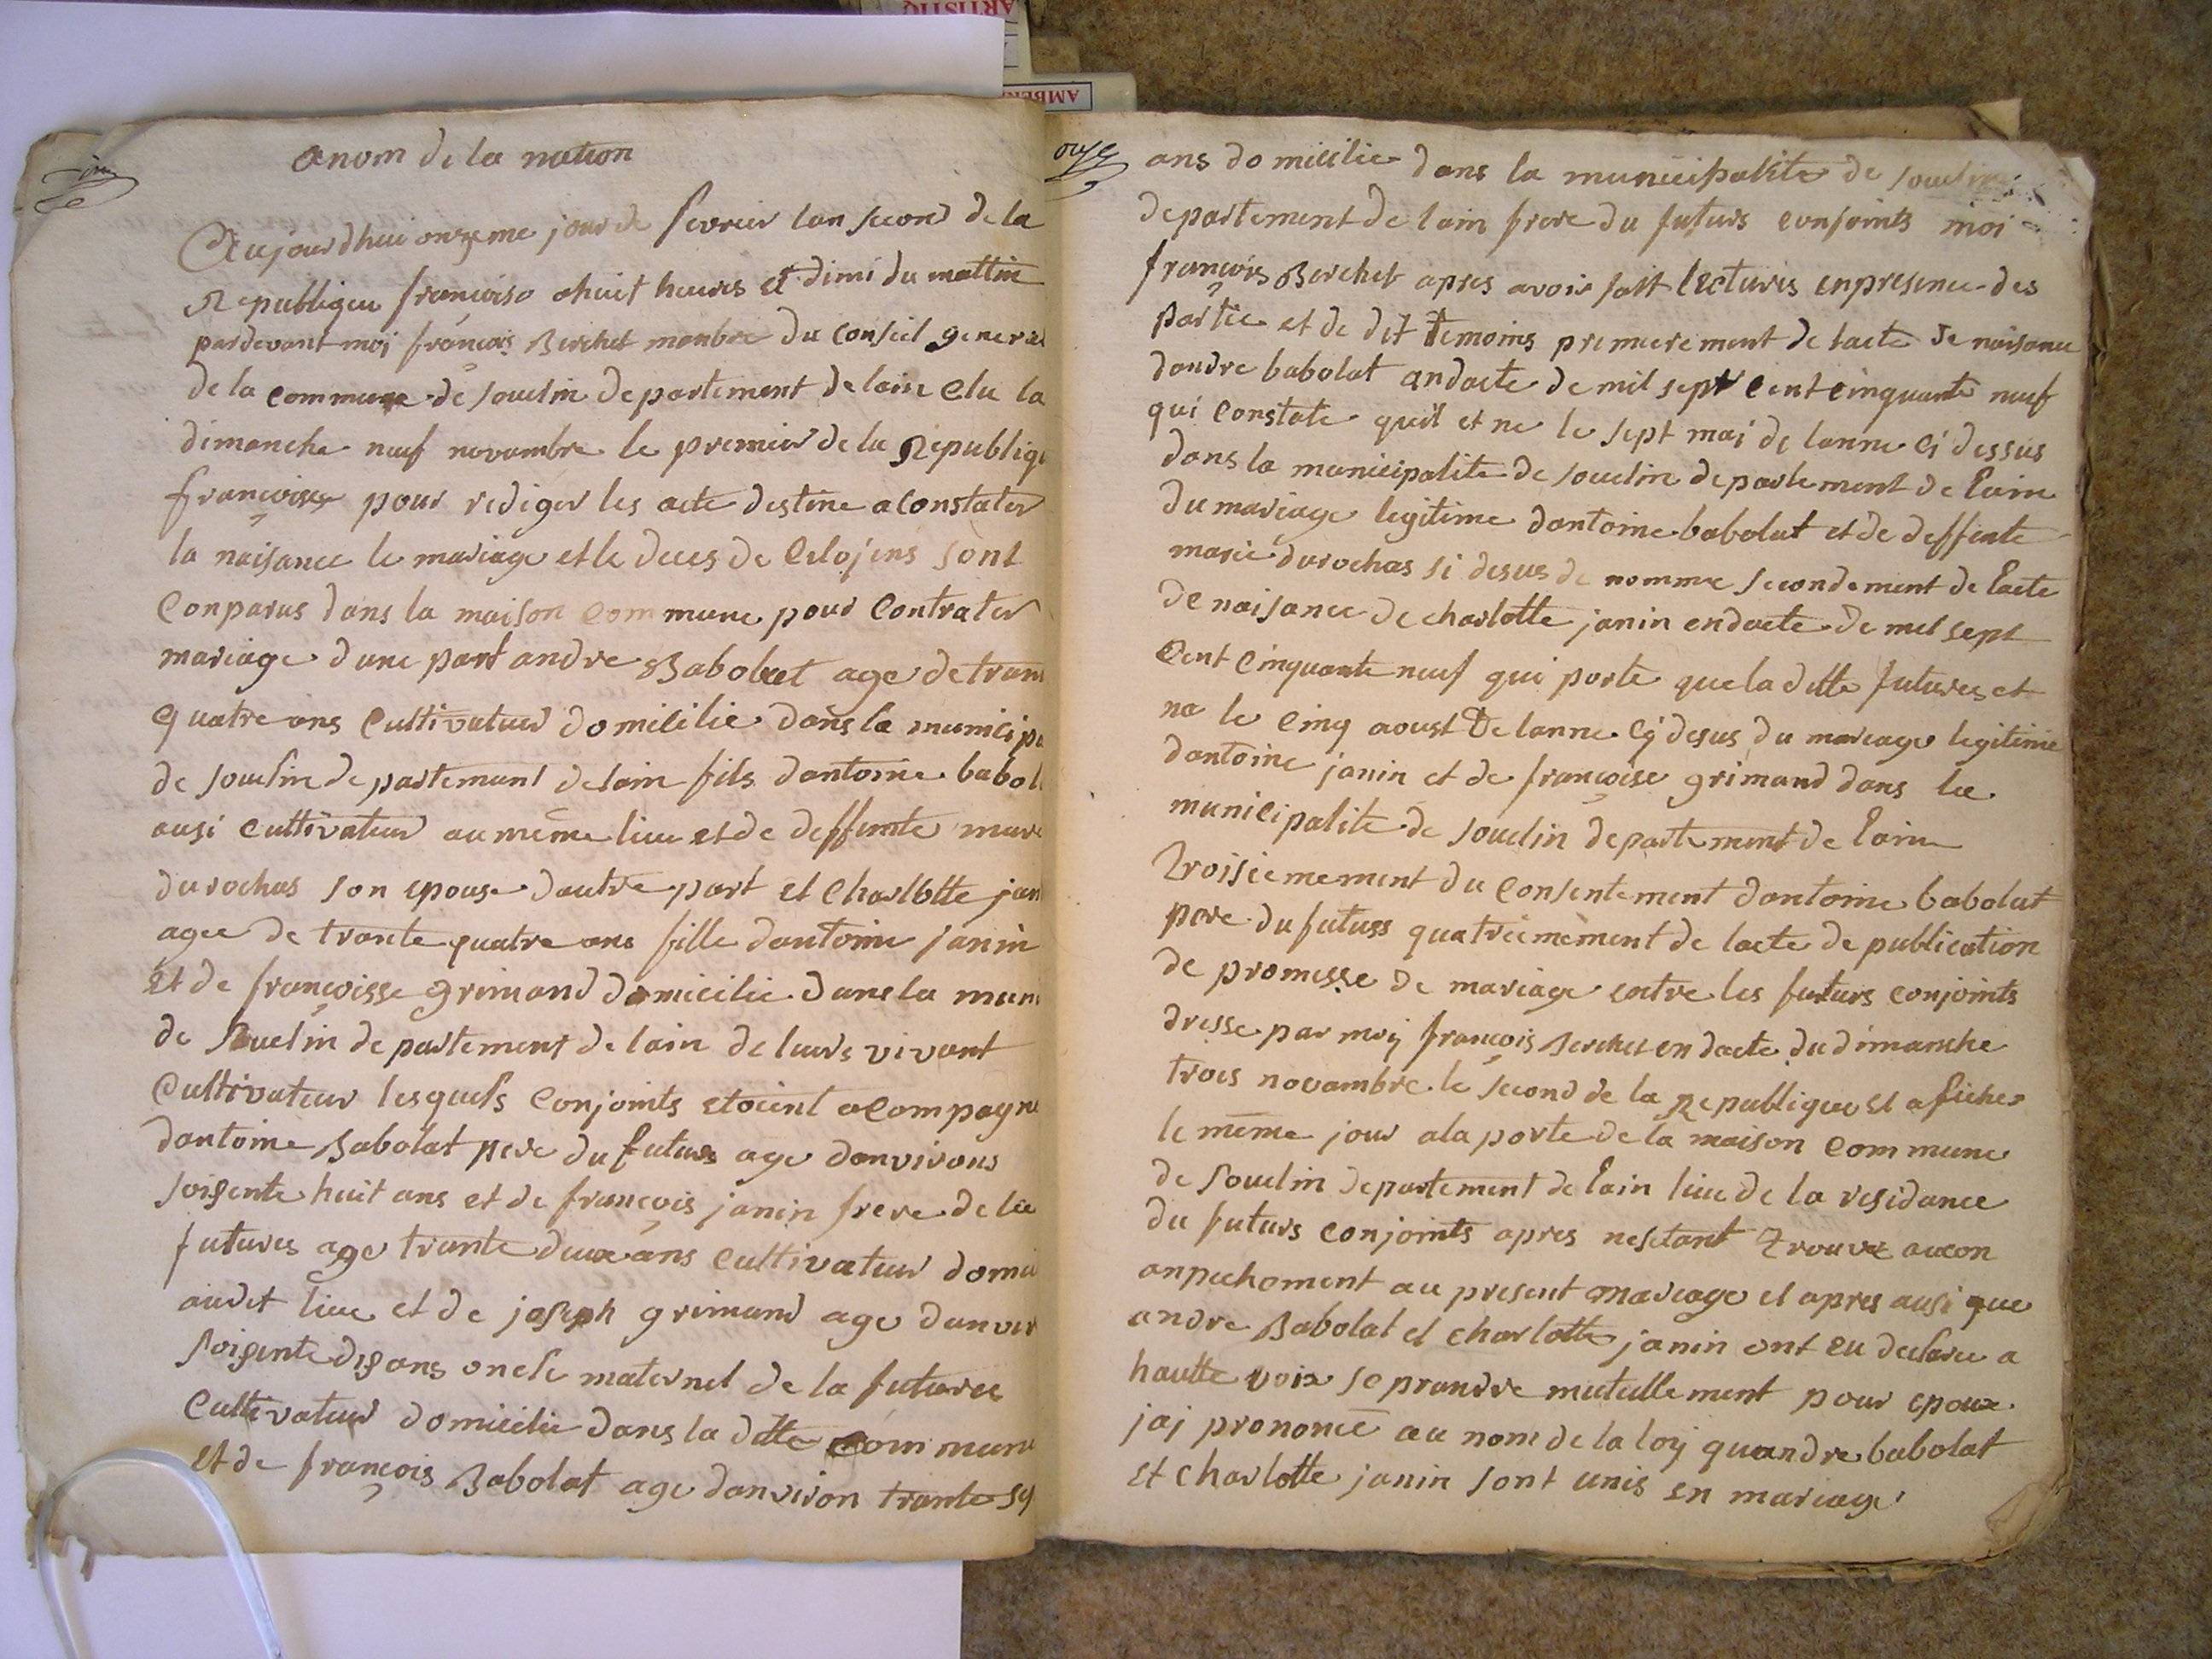 ARTISTIQ
AMBER
anom de la nation
Aujourdhui onzeme jour de fevrier lan second de la
Republique françoise ahuit heures et dimi du mattin
pardevant moi françois Berchet manbre du Conseil general
de la commune de souclin departement de lain elu la
dimanche neuf novambre le premier de la Republiqu
françoise pour rediger les acte destine aConstater
la naisance le mariage et le deces de Citojens sont
Conparus dans la maison Commune pour Contrater
mariage dune part andre Babolat age de trant
quatre ans Cultivateur domicilie dans la municipa
de souclin departemant delain fils dantoine babol
ausi Cultivateur au même lieu et de deffunte mari
durochas son epouse dautre part et Charlotte jan
agee de trante quatre ans fille dantoine janin
et de françoisse grimand domicilie dans la muni
de Souclin departement de lain de leurs vivant
Cultivateur lesquels Conjoints etoient aCompagne
dantoine Babolat pere du futurs age danvirons
soisente huit ans et de françois janin frere de la
futures age trante deux ans Cultivateur domi
audit lieu et de joseph grimand age danvir
soisente dis ans oncle maternel de la futures
Cultivateur domicilie dans la ditte commune
et de françois Babolat age danviron trante
onze
ans domicilie dans la municipalite de souclin
departement de lain frere du futurs conjoints moi
françois Berchet apres avoir fait lectures enpresence des
partie et de dit temoins premierement de lacte de naisance
dandre babolat andacte de mil sept Cent Cinquante neuf
qui Constate quil et ne le sept mai de lanne Ci dessus
dans la municipalite de souclin departement de lain
du mariage legitime dantoine babolat et de deffente
marie durochas si desus de nomme secondement de lacte
de naisance de charlotte janin endacte de mil sept
Cent Cinquante neuf qui porte que la ditte futures et
ne le Cinq aoust de lanne Cy desus du mariage legitime
dantoine janin et de françoise grimand dans la
municipalite de souclin departement de lain
Troisiemement du Consentement dantoine babolat
pere du futurs quatriemement de lacte de publication
de promesse de mariage entre les futurs conjoints
dresse par moy françois Berchet en dacte du dimanche
trois novambre le second de la Republique et afiche
le même jour ala porte de la maison Commune
de Souclin departement de lain lieu de la residance
du futurs conjoints apres nestant trouve aucon
anpechement au present mariage et apres ausi que
andre Babolat et charlotte janin ont eu declare a
hautte voix se prandre mutuellement pour epoux
jaj prononcé au nom de la loy quandre babolat
et Charlotte janin sont unis en mariage